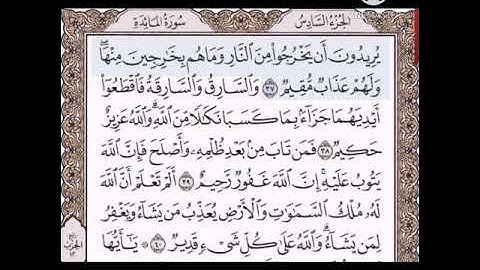 الجزء السادس سورة المائدة
يُرِيدُونَ أَن يَخْرُجُوا۟ مِنَ ٱلنَّارِ وَمَا هُم بِخَٰرِجِينَ مِنْهَا ۖ
وَلَهُمْ عَذَابٌ مُّقِيمٌ ٣٧ وَٱلسَّارِقُ وَٱلسَّارِقَةُ فَٱقْطَعُوٓا۟
أَيْدِيَهُمَا جَزَآءًۢ بِمَا كَسَبَا نَكَٰلًا مِّنَ ٱللَّهِ ۗ وَٱللَّهُ عَزِيزٌ
حَكِيمٌ ٣٨ فَمَن تَابَ مِنۢ بَعْدِ ظُلْمِهِۦ وَأَصْلَحَ فَإِنَّ ٱللَّهَ
يَتُوبُ عَلَيْهِ ۗ إِنَّ ٱللَّهَ غَفُورٌ رَّحِيمٌ ٣٩ أَلَمْ تَعْلَمْ أَنَّ ٱللَّهَ
لَهُۥ مُلْكُ ٱلسَّمَٰوَٰتِ وَٱلْأَرْضِ يُعَذِّبُ مَن يَشَآءُ وَيَغْفِرُ
لِمَن يَشَآءُ ۗ وَٱللَّهُ عَلَىٰ كُلِّ شَىْءٍ قَدِيرٌ ٤٠ يَٰٓأَيُّهَا